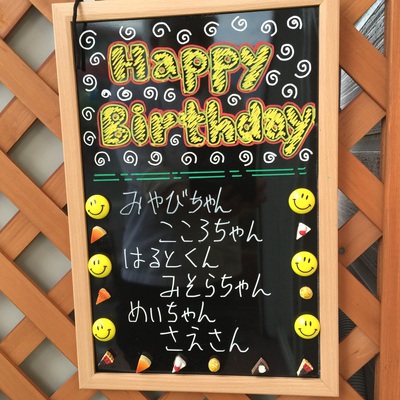 Happy
Birthday
みやびちゃん
こころちゃん
はるとくん
みそらちゃん
めいちゃん
さえさん